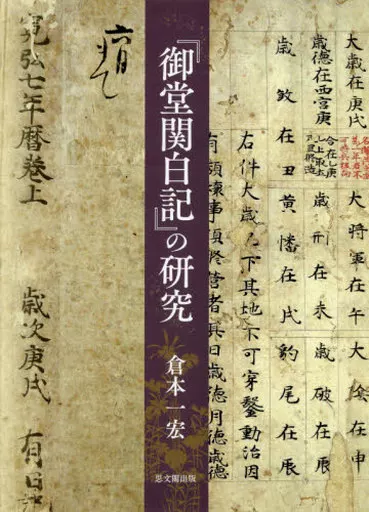 『御堂関白記』の研究
倉本一宏
思文閣出版
大歳在庚戌
歳德在西宮庚
大将軍在午
大陰在申
歳刑在未
歳破在辰
歳殺在丑
黄幡在戌
豹尾在辰
右件大歳以下其地不可穿鑿動治因
有頽壊事須修營者其日歳德月德
寛弘七年暦巻上
歳次庚戌